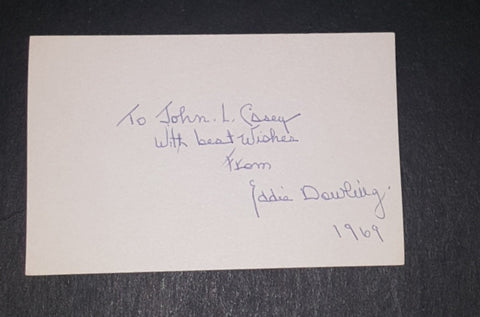 To John. L. Casey
With best Wishes
From
Eddie Dowling.
1969